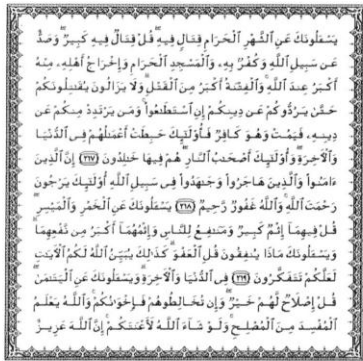 يَسْـَٔلُونَكَ عَنِ ٱلشَّهْرِ ٱلْحَرَامِ قِتَالٍ فِيهِ ۖ قُلْ قِتَالٌ فِيهِ كَبِيرٌ ۖ وَصَدٌّ
عَن سَبِيلِ ٱللَّهِ وَكُفْرٌۢ بِهِۦ وَٱلْمَسْجِدِ ٱلْحَرَامِ وَإِخْرَاجُ أَهْلِهِۦ مِنْهُ
أَكْبَرُ عِندَ ٱللَّهِ ۚ وَٱلْفِتْنَةُ أَكْبَرُ مِنَ ٱلْقَتْلِ ۗ وَلَا يَزَالُونَ يُقَـٰتِلُونَكُمْ
حَتَّىٰ يَرُدُّوكُمْ عَن دِينِكُمْ إِنِ ٱسْتَطَـٰعُوا۟ ۚ وَمَن يَرْتَدِدْ مِنكُمْ عَن
دِينِهِۦ فَيَمُتْ وَهُوَ كَافِرٌ فَأُو۟لَـٰٓئِكَ حَبِطَتْ أَعْمَـٰلُهُمْ فِى ٱلدُّنْيَا
وَٱلْـَٔاخِرَةِ ۖ وَأُو۟لَـٰٓئِكَ أَصْحَـٰبُ ٱلنَّارِ ۖ هُمْ فِيهَا خَـٰلِدُونَ ٢١٧ إِنَّ ٱلَّذِينَ
ءَامَنُوا۟ وَٱلَّذِينَ هَاجَرُوا۟ وَجَـٰهَدُوا۟ فِى سَبِيلِ ٱللَّهِ أُو۟لَـٰٓئِكَ يَرْجُونَ
رَحْمَتَ ٱللَّهِ ۚ وَٱللَّهُ غَفُورٌ رَّحِيمٌ ٢١٨ يَسْـَٔلُونَكَ عَنِ ٱلْخَمْرِ وَٱلْمَيْسِرِ ۖ
قُلْ فِيهِمَآ إِثْمٌ كَبِيرٌ وَمَنَـٰفِعُ لِلنَّاسِ وَإِثْمُهُمَآ أَكْبَرُ مِن نَّفْعِهِمَا ۗ
وَيَسْـَٔلُونَكَ مَاذَا يُنفِقُونَ قُلِ ٱلْعَفْوَ ۗ كَذَٰلِكَ يُبَيِّنُ ٱللَّهُ لَكُمُ ٱلْـَٔايَـٰتِ
لَعَلَّكُمْ تَتَفَكَّرُونَ ٢١٩ فِى ٱلدُّنْيَا وَٱلْـَٔاخِرَةِ ۗ وَيَسْـَٔلُونَكَ عَنِ ٱلْيَتَـٰمَىٰ ۖ
قُلْ إِصْلَاحٌ لَّهُمْ خَيْرٌ ۖ وَإِن تُخَالِطُوهُمْ فَإِخْوَٰنُكُمْ ۚ وَٱللَّهُ يَعْلَمُ
ٱلْمُفْسِدَ مِنَ ٱلْمُصْلِحِ ۚ وَلَوْ شَآءَ ٱللَّهُ لَأَعْنَتَكُمْ ۚ إِنَّ ٱللَّهَ عَزِيزٌ